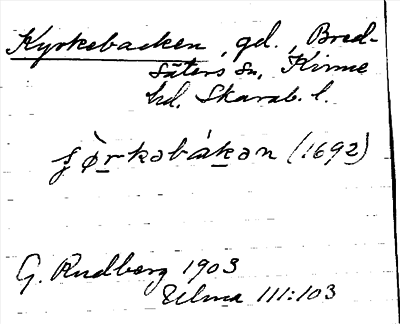 Kyrkebacken, gd., Bred-
säters sn, Kinne
hd. Skarab. l.
ʂø̀rkəbákən (1692)
G. Rudberg 1903
Ulma 111:103